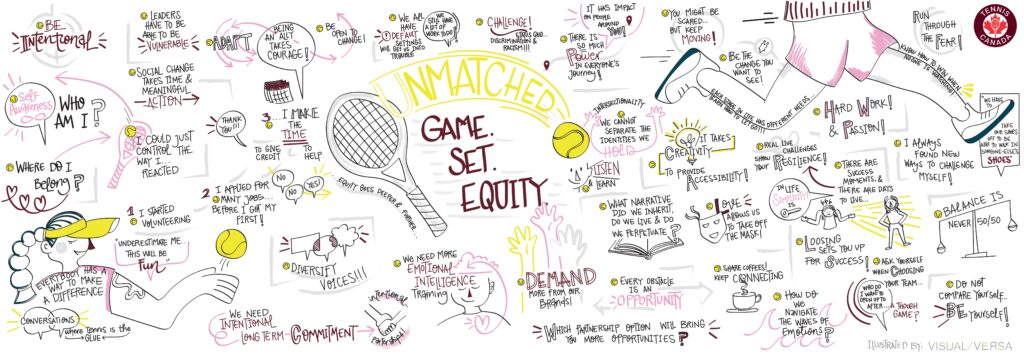 BE
Intentional
LEADERS
HAVE TO BE
ABLE TO BE
VULNERABLE
ADAPT
BEING
AN ALLY
TAKES
COURAGE!
BE
OPEN TO
CHANGE!
WE ALL
HAVE
DEFAULT
SETTINGS
WILL GET US INTO
TROUBLE
WE
STILL HAVE
A LOT OF
WORK TO DO
CHALLENGE!
STATUS QUO...
DISCRIMINATION &
RACISM!!!
IT HAS IMPACT
ON PEOPLE
AROUND
THERE IS
SO MUCH
Power
IN EVERYONE'S
JOURNEY!
YOU MIGHT BE
SCARED...
BUT KEEP
MOVING!
BE THE
CHANGE YOU
WANT TO
SEE!
RUN
THROUGH
THE FEAR!
TENNIS
CANADA
SOCIAL CHANGE
TAKES TIME &
MEANINGFUL
ACTION
Self
Awareness
WHO
AM I?
WHERE DO I
Belong?
I COULD JUST
CONTROL THE
WAY I...
REACTED
THANK
YOU!!!
3...I MAKE
THE
TIME
TO GIVE
CREDIT
TO
HELP
NO
NO
YES!
2 I APPLIED FOR
MANY JOBS...
BEFORE I GOT MY
FIRST!
1 I STARTED
VOLUNTEERING
"UNDERESTIMATE ME...
THIS WILL BE
Fun"
EVERYBODY HAS A
WAY TO MAKE
A DIFFERENCE
CONVERSATIONS
where Tennis is the
GLUE
UNMATCHED:
GAME.
SET.
EQUITY.
EQUITY GOES DEEPER & FURTHER
DIVERSIFY
VOICES!!!
WE NEED
INTENTIONAL
LONG TERM
COMMITMENT
intentional
partnerships
WE NEED MORE
EMOTIONAL
INTELLIGENCE
Training
DEMAND
MORE FROM OUR
Brands!
INTERSECTIONALITY
WE CANNOT
SEPARATE THE
IDENTITIES WE
HOLD
LISTEN
& LEARN
IT TAKES
CREATIVITY
TO PROVIDE
ACCESSIBILITY!
WHAT NARRATIVE
DID WE INHERIT,
DO WE LIVE & DO
WE PERPETUATE?
LOVE
ALLOWS US
TO TAKE OFF
THE MASK!
REAL LIFE
CHALLENGES
SHOW YOUR
RESILIENCE!
HARD WORK!
& PASSION!
THERE ARE
SUCCESS
MOMENTS &
THERE ARE DAYS
TO LIVE...
I ALWAYS
FOUND NEW
WAYS TO CHALLENGE
MYSELF!
WE HAVE
TO
TAKE OUR SHOES
OFF TO BE
ABLE TO WALK IN
SOMEONE ELSE'S
SHOES
IN LIFE
SIMPLICITY
IS
LOSING
SETS YOU UP
FOR SUCCESS!
BALANCE IS
NEVER
50/50
EVERY OBSTACLE
IS AN
OPPORTUNITY
WHICH PARTNERSHIP OPTION WILL BRING
YOU MORE OPPORTUNITIES?
SHARE COFFEES!
KEEP CONNECTING
HOW DO
WE
NAVIGATE
THE WAVES OF
Emotions?
ASK YOURSELF
WHEN CHOOSING
YOUR TEAM...
WHO DO
I WANT TO
OPEN UP TO
AFTER...
A TOUGH
GAME?
DO NOT
COMPARE YOURSELF...
BE
YOURSELF!
ILLUSTRATED BY: VISUAL/VERSA